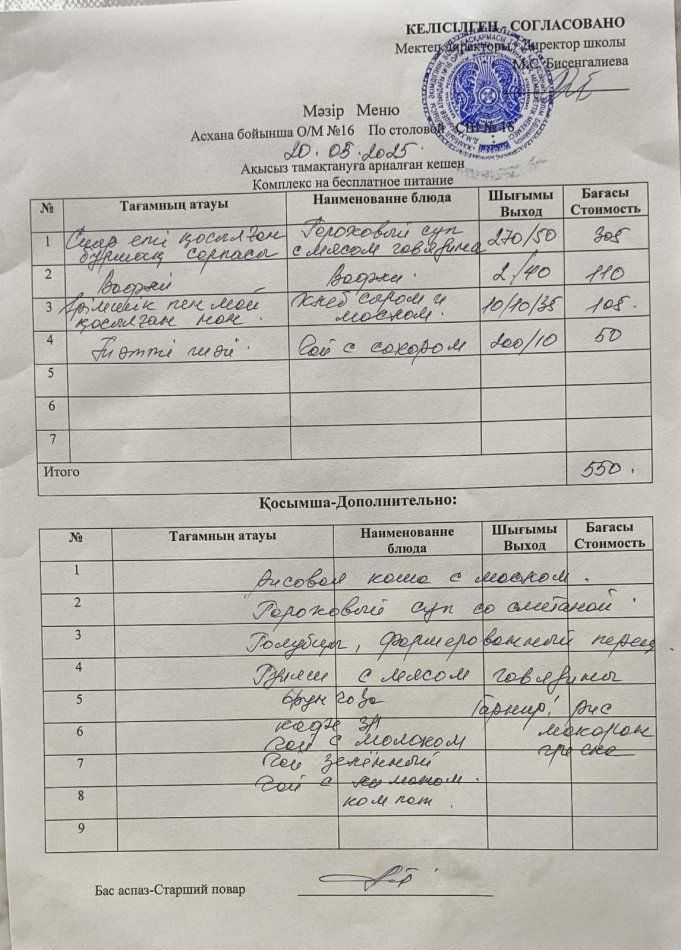 КЕЛІСІЛГЕН - СОГЛАСОВАНО
Мектеп директоры - Директор школы
М.С. Бисенгалиева
Мәзір Меню
Асхана бойынша О/М №16 По столовой СШ № 16
20.05.2025
Ақысыз тамақтануға арналған кешен
Комплекс на бесплатное питание
№ Тағамның атауы Наименование блюда Шығымы Выход Бағасы Стоимость
1 Сиыр еті қосылған бұршақ сорпасы Гороховый суп с мясом говядина 270/50 305
2 110
3 Ірімшік пен май қосылған нан. Хлеб сыром и маслом. 10/10/35 105.
4 Тәтті шәй. Чай с сахаром 200/10 50
5
6
7
Итого 550.
Қосымша-Дополнительно:
№ Тағамның атауы Наименованне блюда Шығымы Выход Бағасы Стоимость
1 Рисовая каша с маслом.
2 Гороховый суп со сметаной.
3 Голубцы, фаршированный перец
4 с мясом говядины
5 Гарнир: рис
6 макарон
чай с молоком гречка
7 Чай зелённый
Чай с лимоном.
8 компот.
9
Бас аспаз-Старший повар